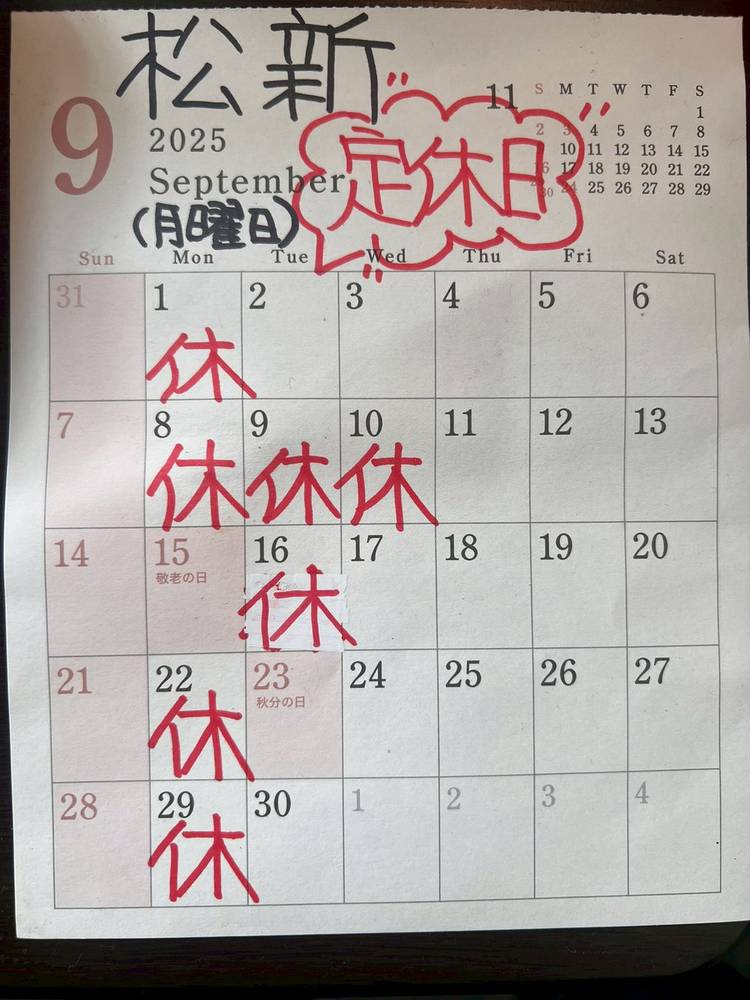 松新
9
2025
September
(月曜日)
定休日
11
S M T W T F S
1
2 3 4 5 6 7 8
10 11 12 13 14 15
16 17 18 19 20 21 22
30 24 25 26 27 28 29
Sun Mon Tue Wed Thu Fri Sat
31 1 2 3 4 5 6
休
7 8 9 10 11 12 13
休 休 休
14 15 16 17 18 19 20
敬老の日
休
21 22 23 24 25 26 27
秋分の日
休
28 29 30 1 2 3 4
休